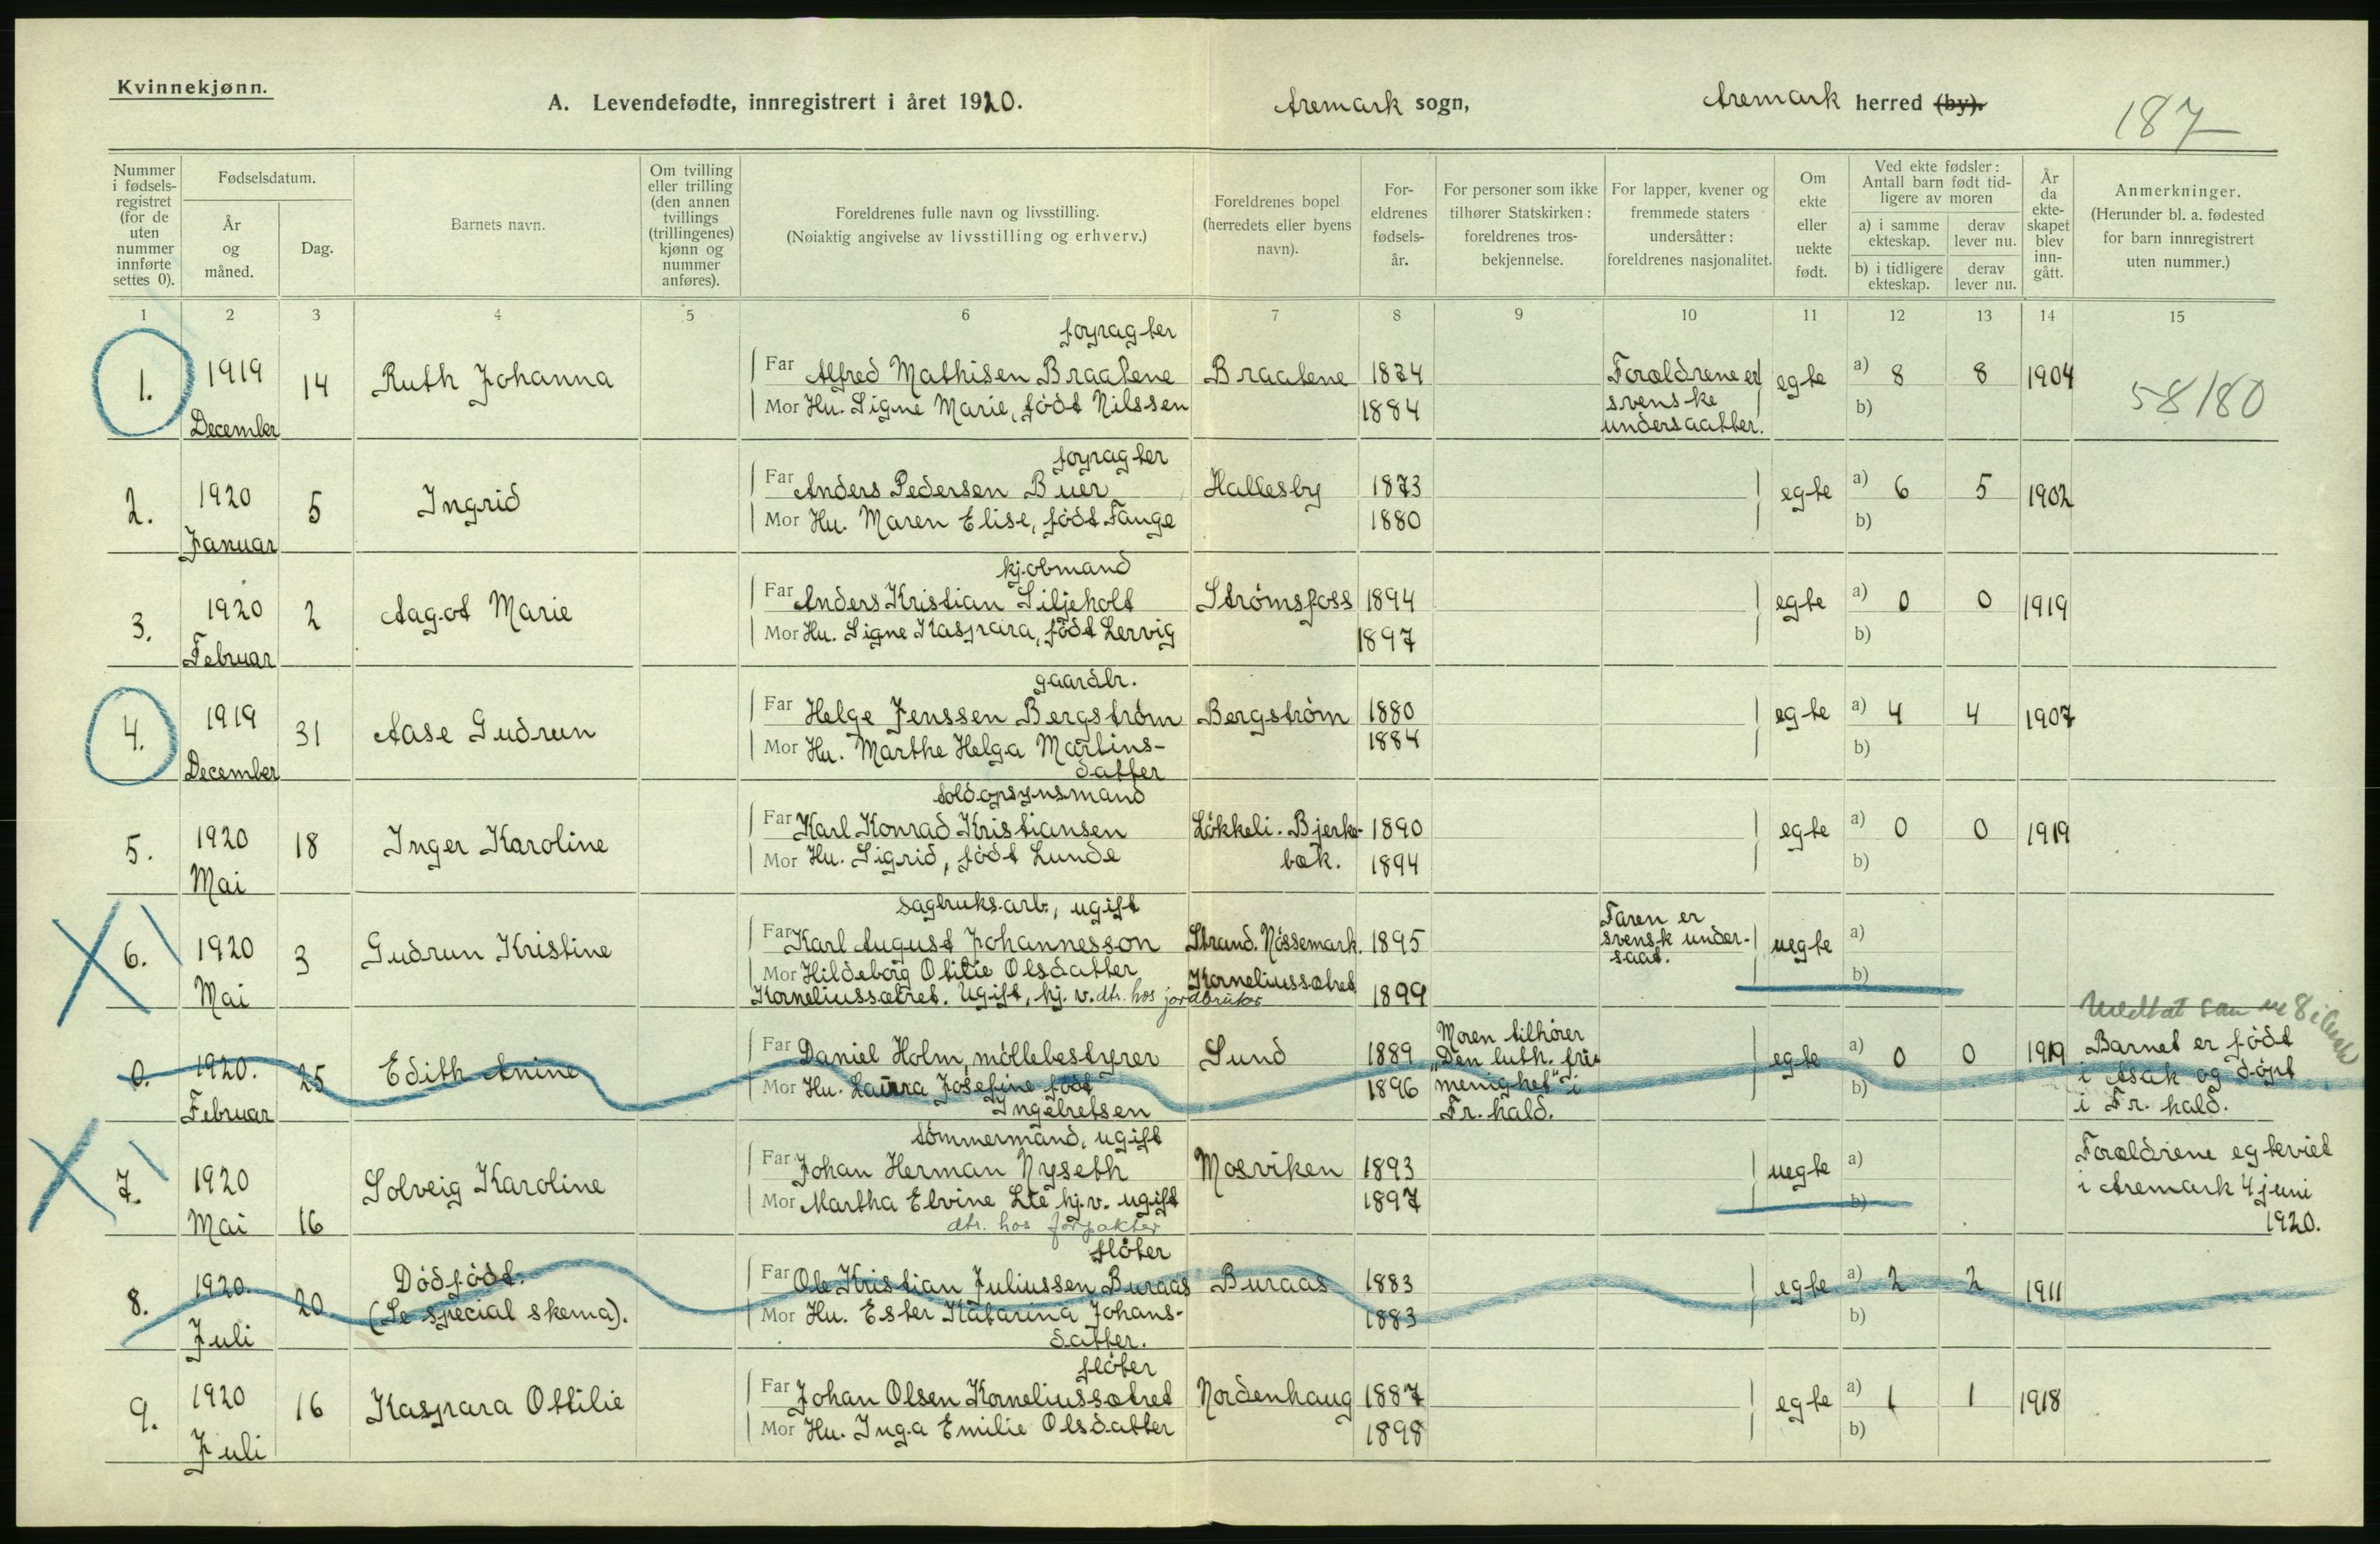 Kvinnekjønn.
A. Levendefødte, innregistrert i året 1920.
Aremark sogn,
Aremark herred (by).
187
Nummer i fødsels-registret (for de uten nummer innførte settes 0).
Fødselsdatum.
År og måned.
Dag.
Barnets navn.
Om tvilling eller trilling (den annen tvillings (trillingenes) kjønn og nummer anføres).
Foreldrenes fulle navn og livsstilling.
(Nøiaktig angivelse av livsstilling og erhverv.)
Foreldrenes bopel (herredets eller byens navn).
For-eldrenes fødsels-år.
For personer som ikke tilhører Statskirken: foreldrenes tros-bekjennelse.
For lapper, kvener og fremmede staters undersåtter: foreldrenes nasjonalitet.
Om ekte eller uekte født.
Ved ekte fødsler: Antall barn født tid-ligere av moren
a) i samme ekteskap.
derav lever nu.
b) i tidligere ekteskap.
derav lever nu.
År da ekte-skapet blev inn-gått.
Anmerkninger.
(Herunder bl. a. fødested for barn innregistrert uten nummer.)
1 2 3 4 5 6 7 8 9 10 11 12 13 14 15
forpagter
1. 1919 December 14 Ruth Johanna
Far Alfred Mathisen Braatene Braatene 1874
Mor Hu. Signe Marie, født Nilssen 1884
Forældrene er
svenske
undersaatter.
egte a) 8 8 1904
b)
58/80
forpagter
2. 1920 Januar 5 Ingrid
Far Anders Pedersen Buer Hallesby 1873
Mor Hu. Maren Elise, født Tange 1880
egte a) 6 5 1902
b)
kjøbmand
3. 1920 Februar 2 Aagot Marie
Far Anders Kristian Siljeholt Strømsfoss 1894
Mor Hu. Signe Kaspara, født Lervig 1897
egte a) 0 0 1919
b)
gaardbr.
4. 1919 December 31 Aase Gudrun
Far Helge Jenssen Bergstrøm Bergstrøm 1880
Mor Hu. Marthe Helga Martins-
datter
1884
egte a) 4 4 1907
b)
toldopsynsmand
5. 1920 Mai 18 Inger Karoline
Far Karl Konrad Kristiansen Løkkeli. Bjerke-
bæk. 1890
Mor Hu. Sigrid, født Lunde 1894
egte a) 0 0 1919
b)
sagbruksarb., ugift
6. 1920 Mai 3 Gudrun Kristine
Far Karl August Johannesson Strand. Nössemark. 1895
Mor Hildeborg Otilie Olsdatter Korneliussætret
Korneliussætret. Ugift, hj. v. dtr. hos jordbruker 1899
Faren er
svensk under-
saat.
uegte a)
b)
0. 1920. Februar 25 Edith Anine
Far Daniel Holm, møllebestyrer Sund 1889
Mor Hu. Laura Josefine født
Ingebretsen
1896
Moren tilhører
"Den luth. fri-
menighet" i
Fr.hald.
egte a) 0 0 1919
b)
Medtat som nr 8 i
Barnet er født
i Asak og døpt
i Fr.hald.
tømmermand, ugift
7. 1920 Mai 16 Solveig Karoline
Far Johan Herman Nyseth Mosviken 1893
Mor Martha Elvine Lie hj.v. ugift 1897
dtr. hos forpakter
uegte a)
b)
Forældrene egteviet
i Aremark 4 juni
1920.
fløter
8. 1920. Juli 20 Dødfødt.
(Se special skema).
Far Ole Kristian Juliussen Buraas Buraas 1883
Mor Hu. Ester Katarina Johans-
datter.
1883
egte a) 2 2 1911
b)
fløter
9. 1920 Juli 16 Kaspara Ottilie
Far Johan Olsen Korneliussætret Nordenhaug 1887
Mor Hu. Inga Emilie Olsdatter 1898
egte a) 1 1 1918
b)